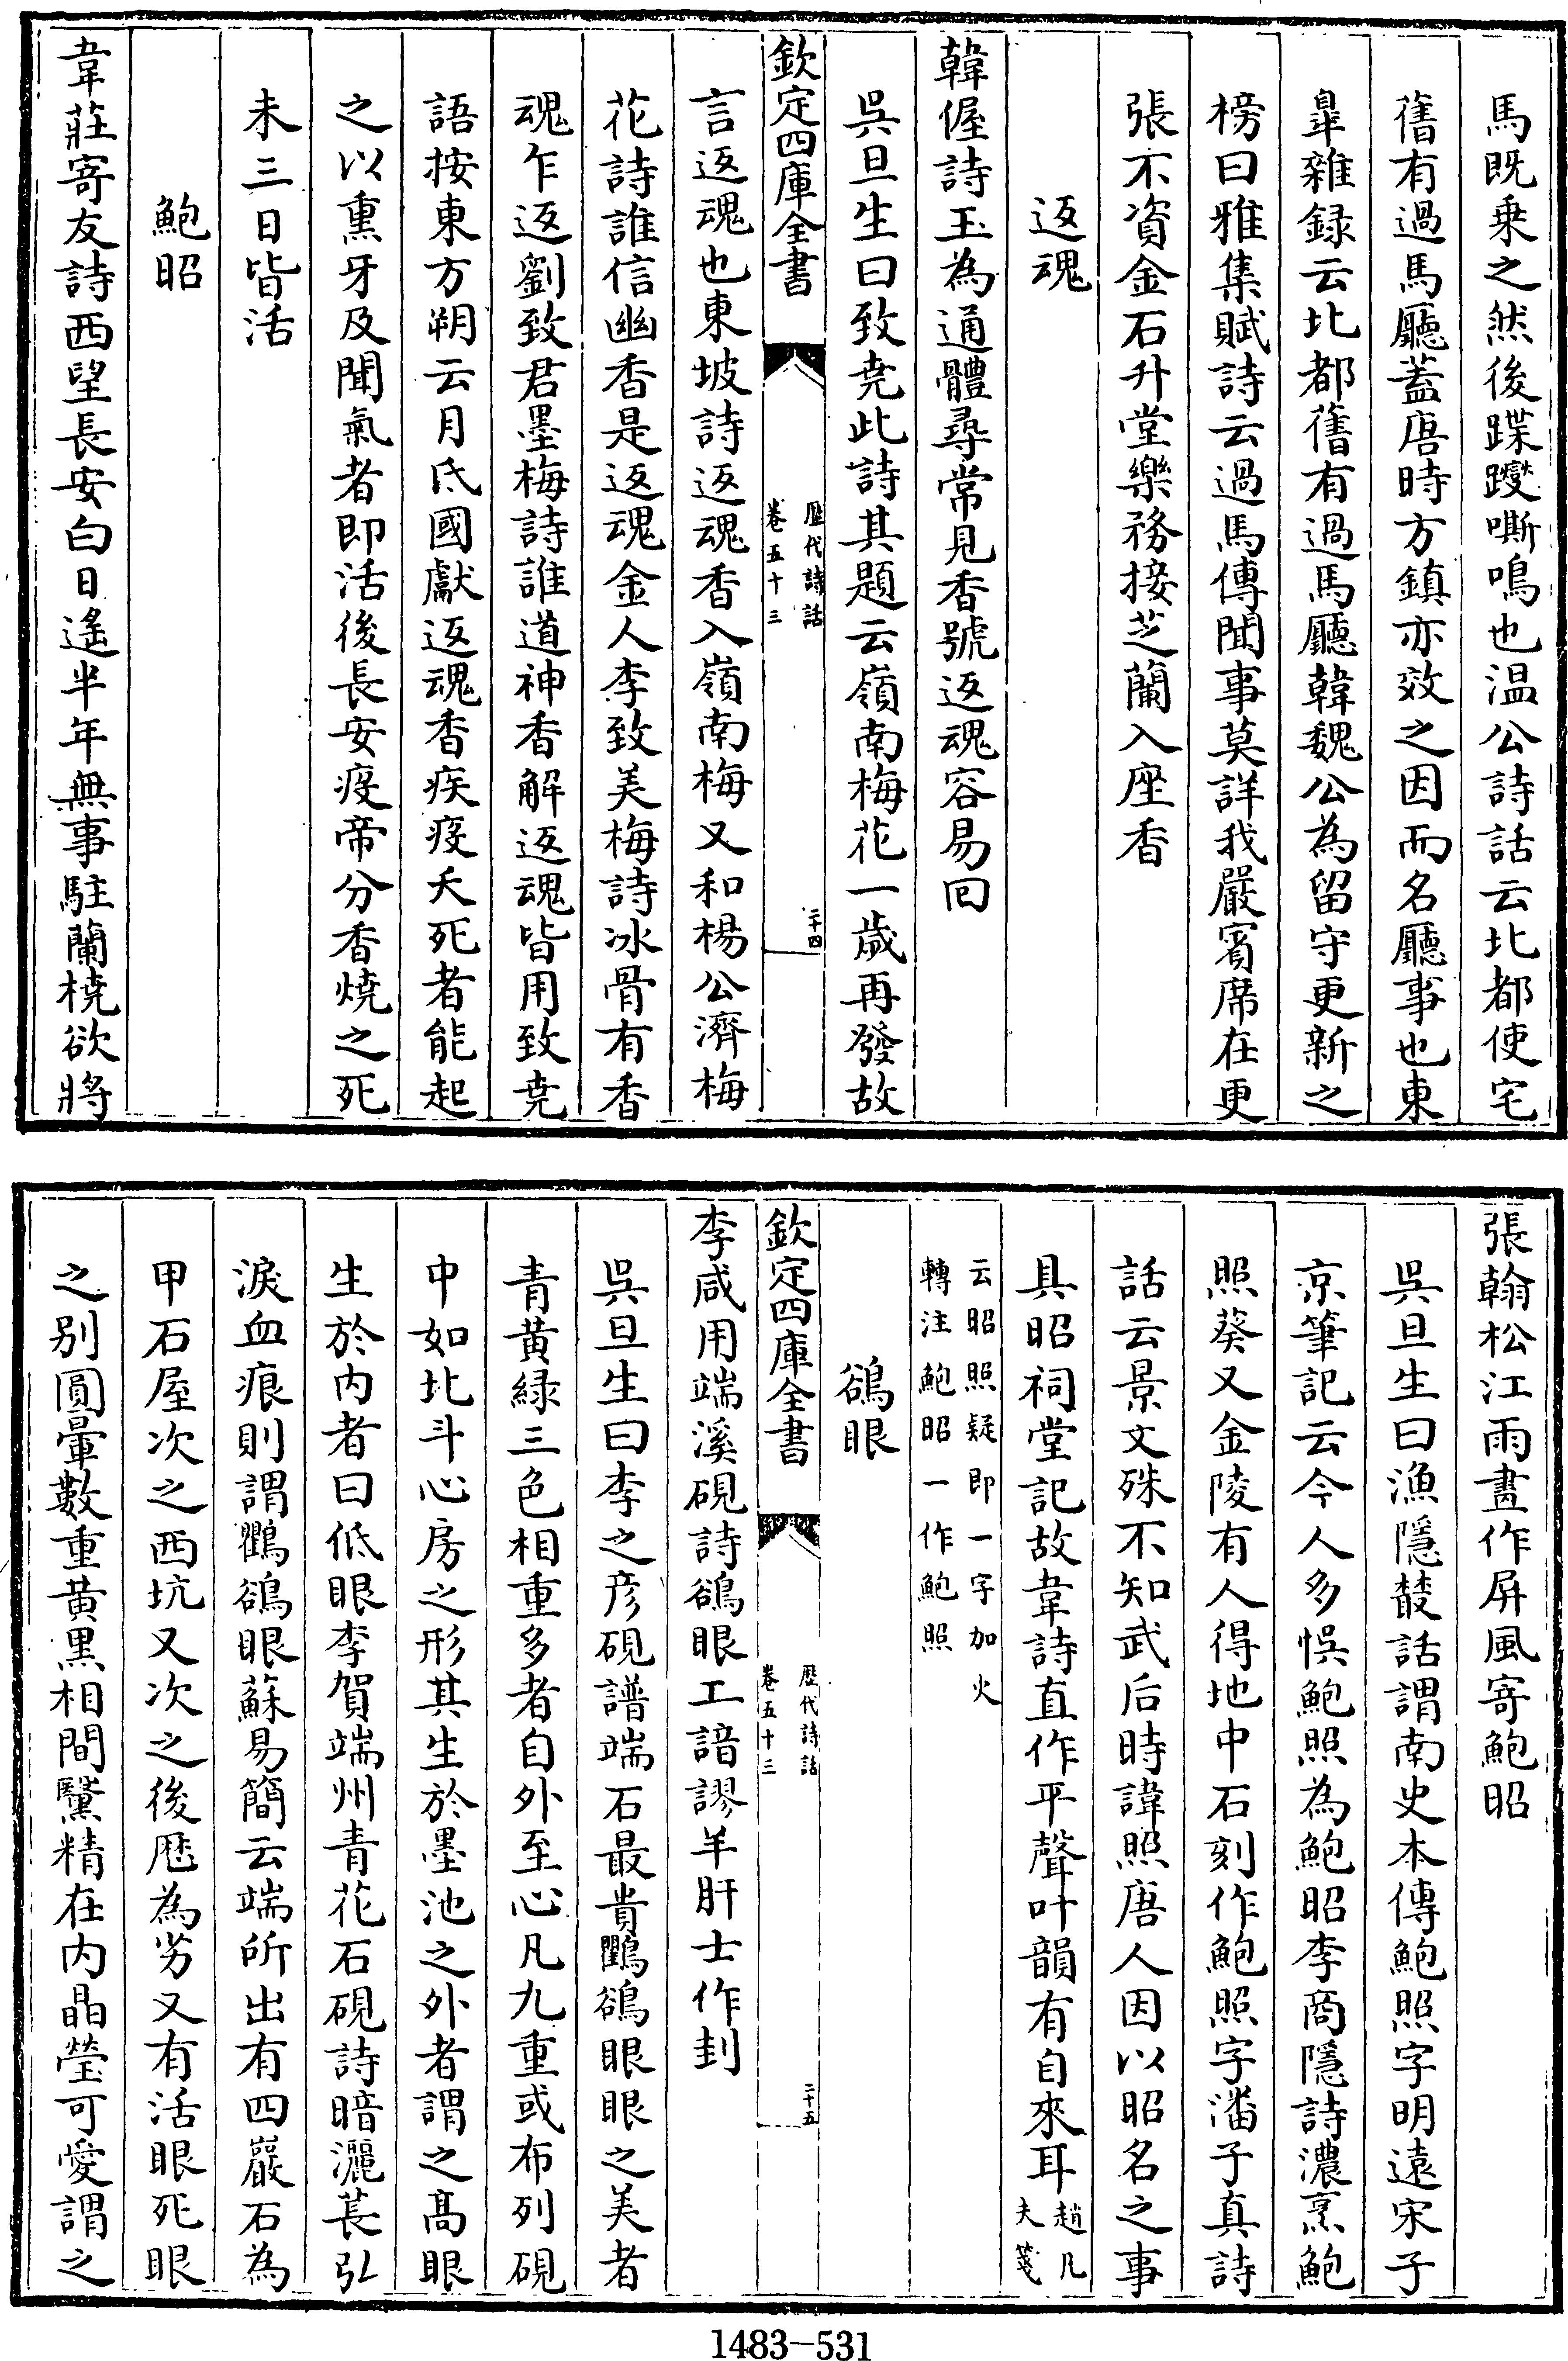 馬既乗之然後蹀躞嘶鳴也温公詩話云北都使宅
舊有過馬廳蓋唐時方鎮亦效之因而名廳事也東
臯雜録云北都舊有過馬廳韓魏公為留守更新之
榜曰雅集賦詩云過馬傳聞事莫詳我嚴賓席在更
張不資金石升堂樂務接芝蘭入座香
返魂
韓偓詩玉為通體尋常見香號返魂容易回
呉旦生曰致堯此詩其題云嶺南梅花一歲再發故
欽定四庫全書
歴代詩話
卷五十三
二十四
言返魂也東坡詩返魂香入嶺南梅又和楊公濟梅
花詩誰信幽香是返魂金人李致美梅詩冰骨有香
魂乍返劉致君墨梅詩誰道神香解返魂皆用致堯
語按東方朔云月氏國獻返魂香疾疫夭死者能起
之以熏牙及聞氣者即活後長安疫帝分香燒之死
未三日皆活
鮑昭
韋莊寄友詩西望長安白日遙半年無事駐蘭橈欲將
張翰松江雨畫作屏風寄鮑昭
呉旦生曰漁隱叢話謂南史本傳鮑照字明遠宋子
京筆記云今人多悞鮑照為鮑昭李商隱詩濃烹鮑
照葵又金陵有人得地中石刻作鮑照字潘子真詩
話云景文殊不知武后時諱照唐人因以昭名之事
具昭祠堂記故韋詩直作平聲叶韻有自來耳趙凡
夫箋
云昭照疑即一字加火
轉注鮑昭一作鮑照
鵒眼
欽定四庫全書
歴代詩話
卷五十三
二十五
李咸用端溪硯詩鵒眼工諳謬羊肝士作刲
呉旦生曰李之彦硯譜端石最貴鸜鵒眼眼之美者
青黄緑三色相重多者自外至心凡九重或布列硯
中如北斗心房之形其生於墨池之外者謂之髙眼
生於内者曰低眼李賀端州青花石硯詩暗灑萇弘
淚血痕則謂鸜鵒眼蘇易簡云端所出有四巖石為
甲石屋次之西坑又次之後歴為劣又有活眼死眼
之别圓暈數重黄黒相間黳精在内晶瑩可愛謂之
1483-531